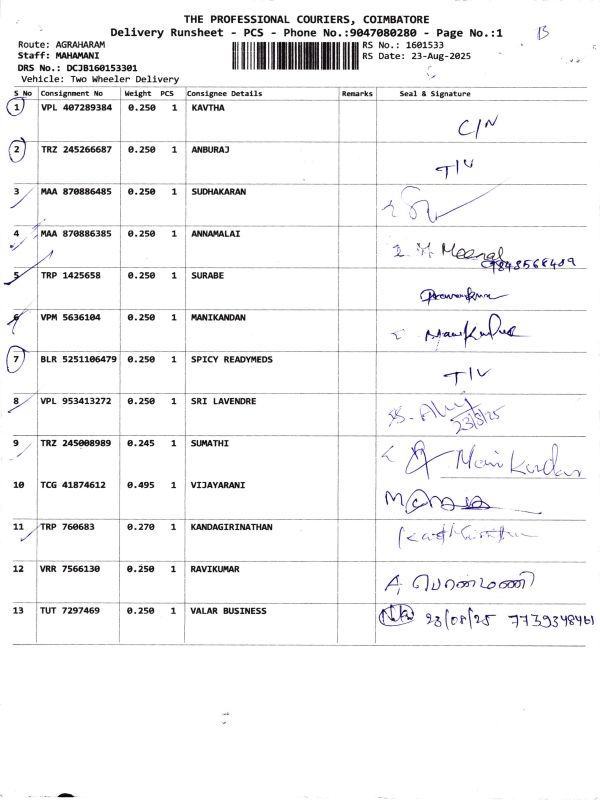 THE PROFESSIONAL COURIERS, COIMBATORE
Delivery Runsheet - PCS - Phone No.:9047080280 - Page No.:1
B
Route: AGRAHARAM RS No.: 1601533
Staff: MAHAMANI RS Date: 23-Aug-2025
DRS No.: DCJB160153301
Vehicle: Two Wheeler Delivery
S No Consignment No Weight PCS Consignee Details Remarks Seal & Signature
1 VPL 407289384 0.250 1 KAVTHA C/N
2 TRZ 245266687 0.250 1 ANBURAJ T/L
3 MAA 870886485 0.250 1 SUDHAKARAN
4 MAA 870886385 0.250 1 ANNAMALAI Meenal
9843568409
5 TRP 1425658 0.250 1 SURABE
6 VPM 5636104 0.250 1 MANIKANDAN
7 BLR 5251106479 0.250 1 SPICY READYMEDS T/L
8 VPL 953413272 0.250 1 SRI LAVENDRE
23/8/25
9 TRZ 245008989 0.245 1 SUMATHI Manikandan
10 TCG 41874612 0.495 1 VIJAYARANI
11 TRP 760683 0.270 1 KANDAGIRINATHAN
12 VRR 7566130 0.250 1 RAVIKUMAR A. பொன்மணி
13 TUT 7297469 0.250 1 VALAR BUSINESS 23/08/25 7739348461